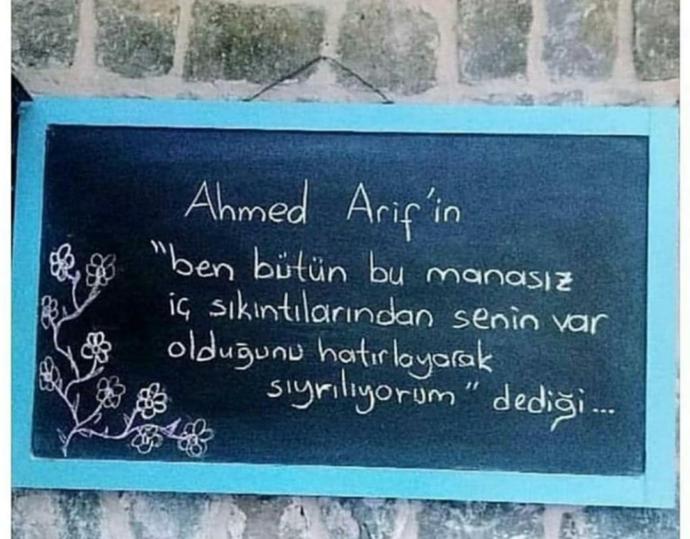 Ahmed Arif'in
"ben bütün bu manasız
iç sıkıntılarından senin var
olduğunu hatırlayarak
sıyrılıyorum" dediği...